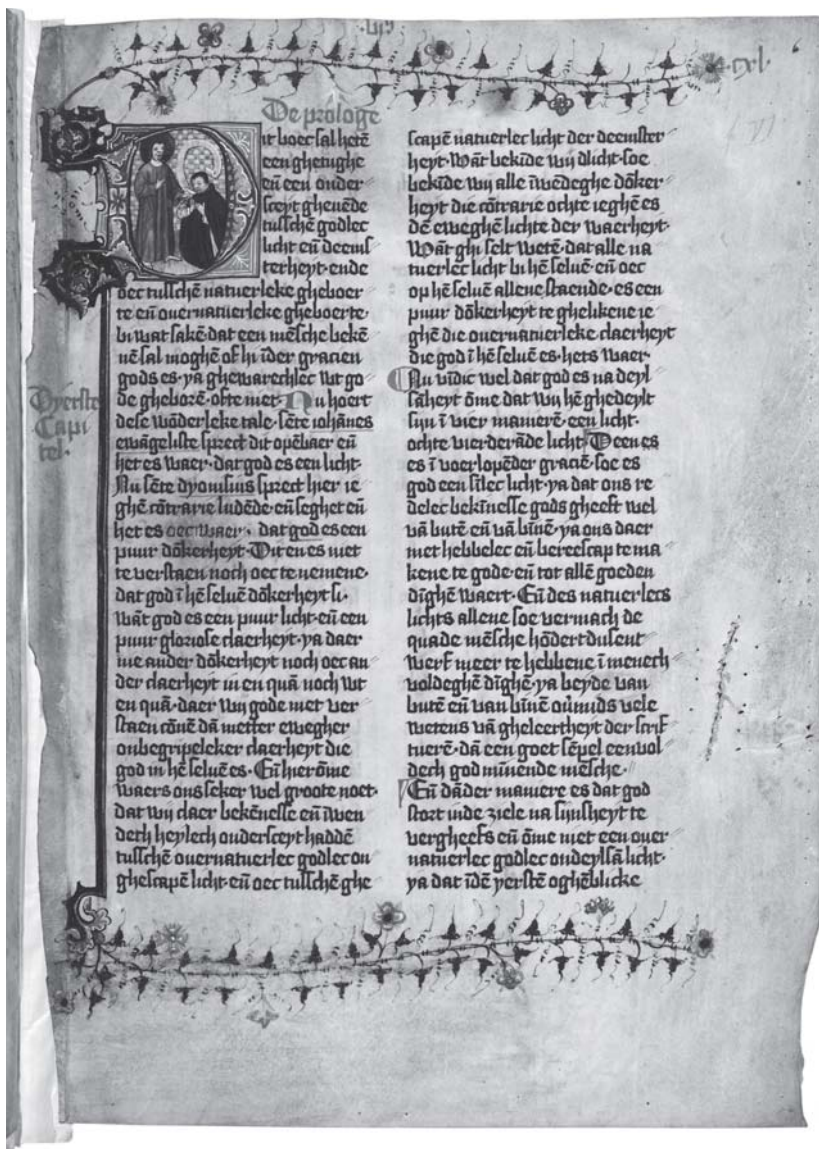 cxl.
De prologe
Dit boec sal hetē
een ghetughe
eñ een onder
sceyt gheuēde
tusschē godlec
licht eñ deems
terheyt· ende
oec tusschē natuerleke gheboer
te eñ ouernatuerleke gheboerte·
bi wat sakē dat een mēsche bekē
nē sal moghē of hi īder gracien
gods es· ya ghewarechlec wt go
de gheborē· ofte niet· Nu hoert
dese wōderleke tale· sēte iohānes
ewāgeliste sprect dit opēbaer eñ
het es waer· dat god es een licht·
Nu sēte dyonisius sprect hier ie
ghē cōtrarie ludēde· eñ seghet eñ
het es oec waer· dat god es een
puur dōkerheyt· Dit en es niet
te verstaen noch oec te nemene·
dat god ī hē seluē dōkerheyt si·
wāt god es een puur licht· eñ een
puur gloriose claerheyt· ya daer
nie ander dōkerheyt noch oec an
der claerheyt in en quā noch wt
en quā· daer wij gode met ver
staen cōnē dā metter ewegher
onbegripeleker claerheyt die
god in hē seluē es· Eñ hier ōme
waers ons seker wel groote noet·
dat wij daer bekēnesse eñ īwen
dech heylech ondersceyt haddē
tusschē ouernatuerlec godlec on
ghescapē licht· eñ oec tusschē ghe
Dyerste
Capi
tel·
scapē natuerlec licht der deemster
heyt· Wāt bekīde wij dlicht· soe
bekīde wij alle īwēdeghe dōker
heyt die cōtrarie ochte ieghē es
dē eweghē lichte der waerheyt·
Wāt ghi selt wetē· dat alle na
tuerlec licht bi hē seluē· eñ oec
op hē seluē allene staende· es een
puur dōkerheyt te ghelikene ie
ghē die ouernatuerleke claerheyt
die god ī hē seluē es· hets waer·
Nu vīdic wel dat god es na deyl
sāheyt ōme dat wij hē ghedeylt
sijn ī vier manierē· een licht·
ochte vierderāde licht· Deen es
es ī voerlopēder graciē· soe es
god een silec licht· ya dat ons re
delec bekīnesse gods gheeft wel
vā butē eñ vā bīnē· ya ons daer
met hebbelec eñ bereescap te ma
kene te gode· eñ tot allē goeden
dīghē waert· Eñ des natuerlecs
lichts allene soe vermach de
quade mēsche hōdertdusent
werf meer te hebbene ī menech
voldeghē dīghē· ya beyde van
butē eñ van bīnē oūmids vele
wetens vā gheleertheyt der scrif
tuerē· dā een goet sēpel eenvol
dech god mīnende mēsche·
Eñ dāder maniere es dat god
stort inde ziele na sijnsheyt te
vergheefs eñ ōme niet een ouer
natuerlec godlec ondeylsā licht·
ya dat īdē yerstē oghēblicke